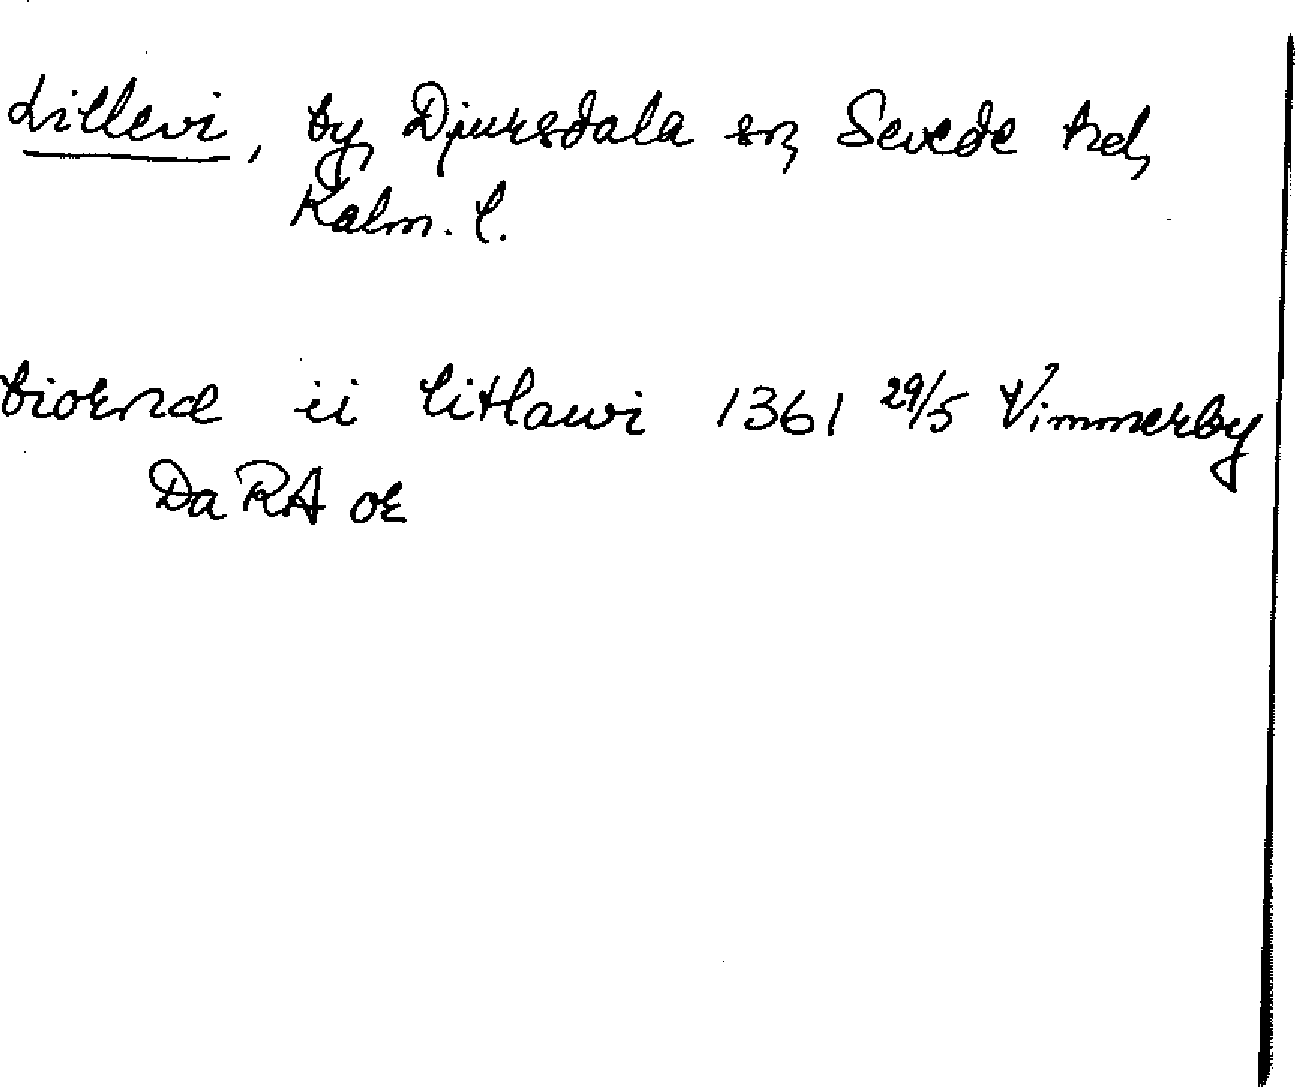 Lillevi, by, Djursdala sn, Sevede hd,
Kalm. l.
biornæ ii litlawi 1361 29/5 Vimmerby
Da RA or